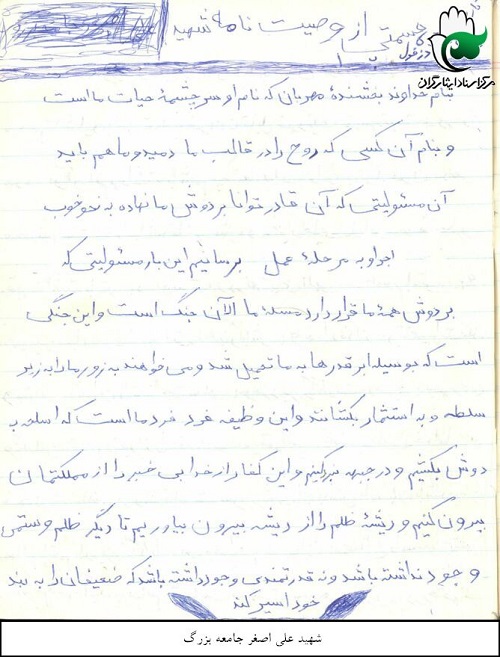 قسمتی از وصیت نامه شهید
دزفول
مرکز اسناد ایثارگران
بنام خداوند بخشندهٔ مهربان که نام او سرچشمهٔ حیات ما است
و بنام آن کسی که روح را در قالب ما دمید و ما هم باید
آن مسئولیتی که آن قادر توانا بر دوش ما نهاده به نحو خوب
اجرا و به مرحلهٔ عمل برسانیم این بار مسئولیتی که
بر دوش همهٔ ما قرار دارد مسئلهٔ ما الآن جنگ است و این جنگی
است که بوسیله ابرقدرها به ما تحمیل شد و می خواهند به زور ما را به زیر
سلطه و به استثمار بکشانند و این وظیفه فرد فرد ما است که اسلحه ب
دوش بکشیم و در جبهه بجنگیم و این کفار از خدا بی خبر را از مملکتمان
بیرون کنیم و ریشهٔ ظلم را از ریشه بیرون بیاوریم تا دیگر ظلم و ستمی
وجود نداشته باشد و نه قدرتمندی وجود داشته باشد که ضعیفان را به بند
خود اسیر کند
شهید علی اصغر جامعه بزرگ